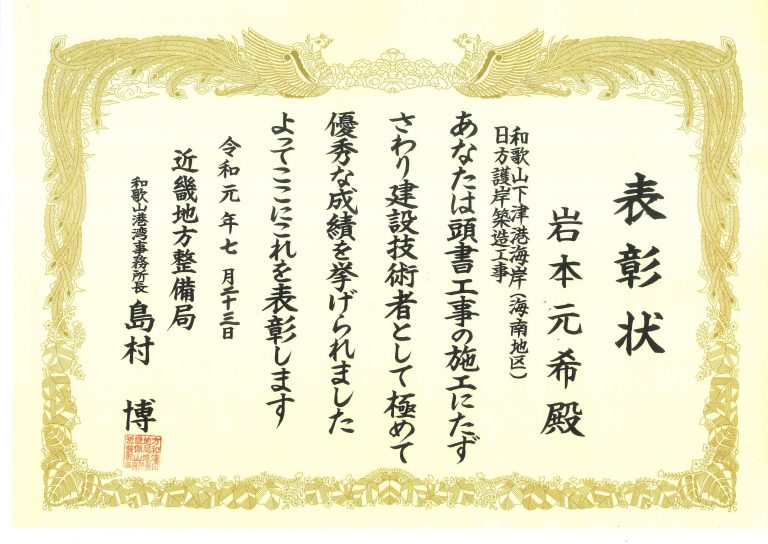 表彰状
岩本元希殿
和歌山下津港海岸(海南地区)
日方護岸築造工事
あなたは頭書工事の施工にたず
さわり建設技術者として極めて
優秀な成績を挙げられました
よってここにこれを表彰します
令和元年七月二十三日
近畿地方整備局
和歌山港湾事務所長 島村 博